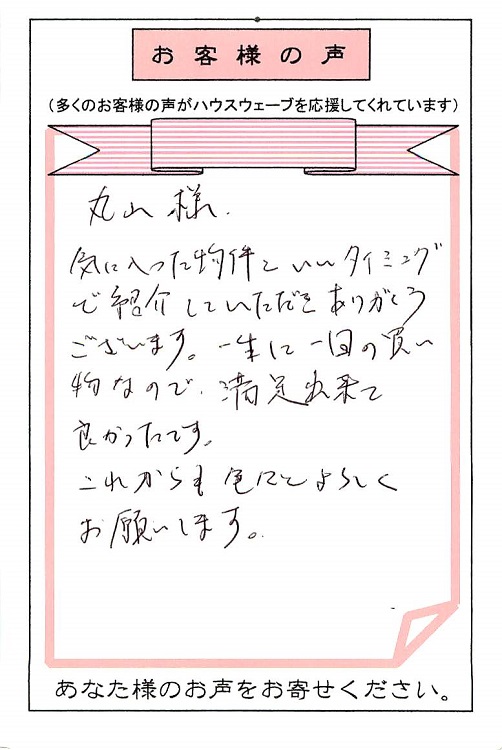 お客様の声
（多くのお客様の声がハウスウェーブを応援してくれています）
丸山様.
気に入った物件をいいタイミング
で紹介していただきありがとう
ございます。一生に一回の買い
物なので、満足出来て
良かったです。
これからも色々とよろしく
お願いします。
あなた様のお声をお寄せください。